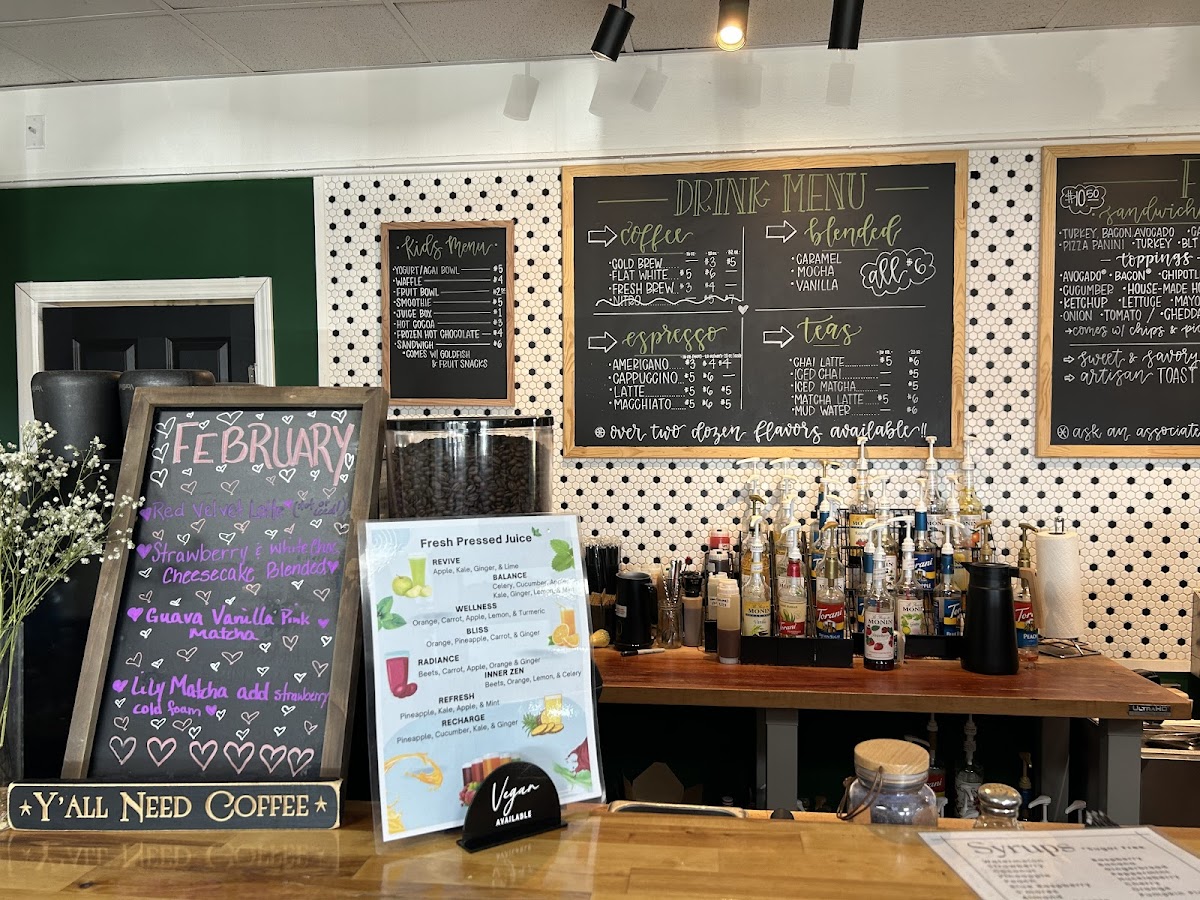 Kids Menu
YOGURT/ACAI BOWL $5
WAFFLE $4
FRUIT BOWL
SMOOTHIE $5
JUICE BOX $1
HOT COCOA $3
FROZEN HOT CHOCOLATE $4
SANDWICH $6
•COMES W/ GOLDFISH
& FRUIT SNACKS
DRINK MENU
coffee
•COLD BREW $3 $5
•FLAT WHITE $5 $6
•FRESH BREW $3
•NITRO
blended
•CARAMEL
•MOCHA
•VANILLA
all $6
espresso
•AMERICANO $3 $4 $4
•CAPPUCCINO $5 $6
•LATTE $5 $6 $5
•MACCHIATO $5 $6 $5
teas
•CHAI LATTE $5
•ICED CHAI $5
•ICED MATCHA $5
•MATCHA LATTE $5 $6
•MUD WATER $6
over two dozen flavors available!!
$10.50
sandwich
•TURKEY, BACON, AVOCADO
•PIZZA PANINI •TURKEY •BLT
toppings
•AVOCADO* •BACON* •CHIPOTL
CUCUMBER •HOUSE-MADE
•KETCHUP •LETTUCE •MAYO
ONION •TOMATO / •CHEDDA
→comes w/ chips &
sweet & savory
artisan TOAST
ask an associate
FEBRUARY
Red Velvet Latte
Strawberry & White Choc
Cheesecake Blended
Guava Vanilla Pink
Matcha
Lily Matcha add strawberry
cold foam
Y'ALL NEED COFFEE
Fresh Pressed Juice
REVIVE
Apple, Kale, Ginger, & Lime
BALANCE
Celery, Cucumber, Apple,
Kale, Ginger, Lemon, & Mint
WELLNESS
Orange, Carrot, Apple, Lemon, & Turmeric
BLISS
Orange, Pineapple, Carrot, & Ginger
RADIANCE
Beets, Carrot, Apple, Orange & Ginger
INNER ZEN
Beets, Orange, Lemon, & Celery
REFRESH
Pineapple, Kale, Apple, & Mint
RECHARGE
Pineapple, Cucumber, Kale, & Ginger
Vegan
AVAILABLE
MONIN
Torani
Torani
MONIN
MONIN
Syrups
*Sugar Free
Watermelon
Strawberry
Coconut
Pineapple
Peach
Blue Raspberry
Raspberry
Banana
Gingerbread
Peppermint
Huckleberry
Cherry
Orange